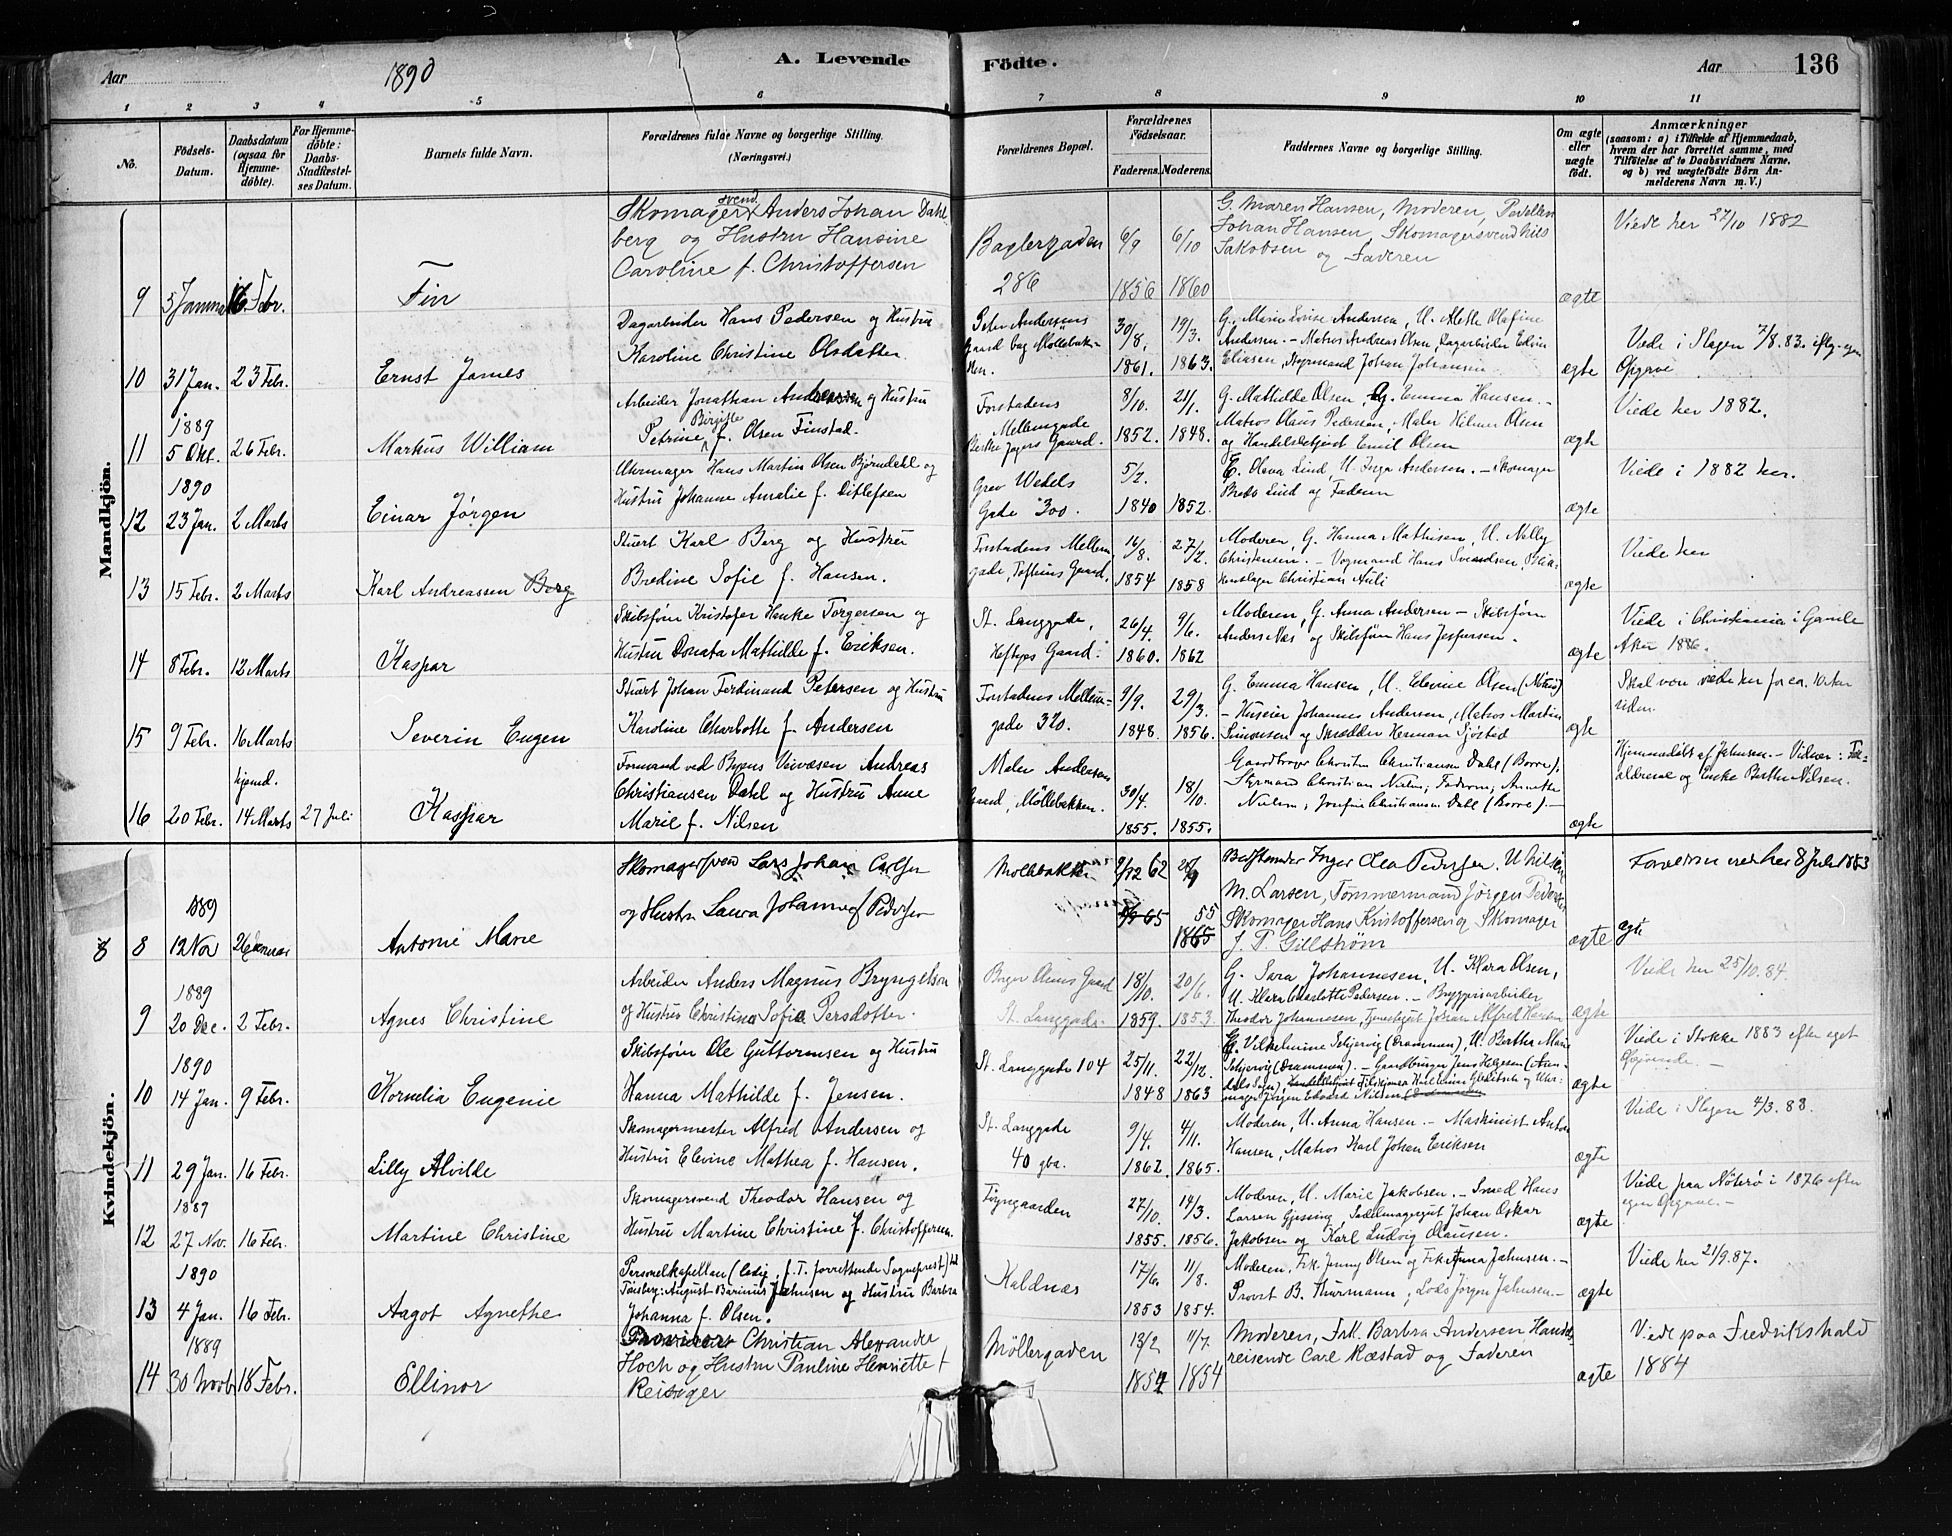 Aar 1890 A. Levende Födte. Aar 136
1 2 3 4 5 6 7 8 9 10 11
No.
Födsels-Datum.
Daabsdatum (ogsaa for Hjemme-döbte).
For Hjemme-döbte: Daabs-Stadfæstel-ses Datum.
Barnets fulde Navn.
Forældrenes fulde Navne og borgerlige Stilling. (Næringsvei.)
Forældrenes Bopæl.
Forældrenes Födselsaar.
Faderens. Moderens.
Faddernes Navne og borgerlige Stilling.
Om ægte eller uægte födt.
Anmærkninger
(saasom: a) i Tilfælde af Hjemmedaab, hvem der har forrettet samme, med Tilföielse af to Daabsvidners Navne, og b) ved uægtefödte Börn An-melderens Navn m. V.)
Mandkjön.
9 5 Januar 16 Febr. Finn
Skomagersvend Anders Johan Dahl-
berg og Hustru Hansine
Caroline f. Christoffersen
Baglergaden
286
6/9 1856 6/10 1860
G. Maren Hansen, Moderen,
Johan Hansen, Skomagersvend Nils
Jakobsen og Faderen
ægte
Viede her 27/10 1882
10 31 Jan. 23 Febr. Ernst James
Dagarbeider Hans Pedersen og Hustru
Karoline Christine Olsdatter.
Peter Andersens
Gaard bag Möllebak-
ken.
30/8. 1861. 19/3. 1863.
G. Marie Lovise Andersen, U. Alethe Olafine
Andersen. – Matros Andreas Olsen, Dagarbeider Edvin
Eliasen, Styrmand Johan Johansen
ægte
Viede i Slagen 7/8.83. iflg. egen
Opgave
11 1889 5 Okt. 26 Febr. Markus William
Arbeider Jonathan Andreassen og Hustru
Petrine Birgitte f. Olsen Finstad.
Forstadens
Mellemgade
Gaard.
8/10. 1852. 21/1. 1848.
G. Mathilde Olsen, G. Emma Hansen. –
Matros Olaus Pedersen, Maler Hilmar Olsen
og Handelsbetjent Emil Olsen
ægte
Viede her 1882.
12 1890 23 Jan. 2 Marts Einar Jörgen
Uhrmager Hans Martin Olsen Björndahl og
Hustru Johanne Amalie f. Ditlefsen
Grev Wedels
Gade 300.
5/2. 1840 1852.
E. Olava Lind, U. Inga Andersen. – Skomager
Bredo Lind og Faderen
ægte
Viede i 1882 her.
13 15 Febr. 2 Marts Karl Andreassen Berg
Stuert Karl Berg og Hustru
Bredine Sofie f. Hansen.
Forstadens Mellem
gade, Gaard.
16/8. 1854 27/2. 1858
Moderen, G. Hanna Mathisen, U. Nelly
Christensen. – Vognmand Hans Svendsen,
Christian Auli
ægte
Viede her
14 8 Febr. 12 Marts Kaspar
Skibsförer Kristofer Henke Torgersen og
Hustru Donata Mathilde f. Eriksen.
St. Langgade,
Heftyes Gaard.
26/4. 1860. 9/6. 1862
Moderen, G. Anna Andersen – Skibsförer
Anders Næs og Skibsförer Hans Jespersen.
ægte
Viede i Christiania i Gamle
Aker 1886.
15 9 Febr. 16 Marts Severin Eugen
Stuert Johan Ferdinand Petersen og Hustru
Karoline Charlotte f. Andersen
Forstadens Mellem-
gade 320.
9/9. 1848. 29/3. 1856.
G. Emma Hansen, U. Elevine Olsen (Nötrö)
– Huseier Johannes Andersen, Matros Martin
Simonsen og Skrædder Herman Sjöstad
ægte
Skal være viede her for ca. 10 Aar
siden
16 20 Febr. hjemd. 14 Marts 27 Juli Kaspar
Formand ved Byens Veivæsen Andreas
Christiansen Dahl og Hustru Anne
Marie f. Nilsen
Maler Andersens
Gaard, Möllebakken.
30/4. 1855. 18/10. 1855.
Gaardbruger Christen Christiansen Dahl (Borre),
Styrmand Christian Nielsen, Faderen, Annette
Nielsen, Josefine Christiansen Dahl (Borre). –
ægte
Hjemmedöbt af Jahnsen. – Vidner: For-
ældrene og Enke Berthe Nilsen.
Kvindekjön.
8 8 1889 12 Nov Antonie Marie
Skomagersvend Lars Johan Carlsen
og Hustru Laura Johanne f Pedersen
Möllebakken
9/12 62 5/9 65 55 1865
Inger Olea Pedersen.
M. Larsen, Tömmermand Jörgen Pedersen
Skomager Hans Kristoffersen og Skomager
J. P. Gillström
ægte ægte
Forældrene viede her 8 Juli 1883
9 1889 20 Dec. 2 Febr. Agnes Christine
Arbeider Anders Magnus Bryngelson
og Hustru Christina Sofia Persdotter.
Gaard
St. Langgade.
18/10. 1859. 20/6. 1853.
G. Sara Johannesen, U. Klara Olsen,
U. Klara Charlotte Pedersen. – Bryggeriarbeider
Theodor Johannesen, Tjenestegut Johan Alfred Hansen
ægte
Viede her 25/10.84.
10 1890 14 Jan. 9 Febr. Kornelia Eugenie
Skibsförer Ole Guttormsen og Hustru
Hanna Mathilde f. Jensen.
St. Langgade 104
25/11. 1848 22/12. 1863
G. Vilhelmine Schjervig (Drammen), U. Berthe Marie
Schjervig (Drammen). – Gaardbruger Jens Helgesen
og Uhr-
mager Jörgen Edvard Nilsen
ægte
Viede i Stokke 1883 efter eget
Opgivende –
11 29 Jan. 16 Febr. Lilly Alvilde
Skomagermester Alfred Andersen og
Hustru Elevine Mathea f. Hansen.
St. Langgade
40 gba.
9/4. 1862. 4/11. 1865.
Moderen, U. Anna Hansen. – Maskinist Anton
Hansen, Matros Karl Johan Eriksen
ægte
Viede i Slagen 4/3.88.
12 1889 27 Nov. 16 Febr. Martine Christine
Skomagersvend Theodor Hansen og
Hustru Martine Christine f. Christoffersen.
Töyngaarden
27/10. 1855. 14/3. 1856.
Moderen, U. Marie Jakobsen. – Smed Hans
Larsen Gjessing, Sadelmagergut Johan Oskar
Jakobsen og Karl Ludvig Olausen.
ægte
Viede paa Nöterö i 1876 efter
egen Opgave. –
13 1890 4 Jan. 16 Febr. Aagot Agnethe
Personelkapellan (ledig, f. T. forrettende Sogneprest) til
Tönsberg: August Barinius Jahnsen og Hustru Barbra
Johanna f. Olsen.
Kaldnæs
17/6. 1853 11/8. 1854.
Moderen, Frk. Jenny Olsen og Frk. Anna Jahnsen. –
Provst B. Thurmann, Lods Jörgen Jahnsen. –
ægte
Viede her 21/9.87.
14 1889 30 Novb 18 Febr. Ellinor
Provisor Christian Alexander
Hoch og Hustru Pauline Henriette f
Reisiger
Möllergaden
13/2 1854 11/7. 1854
Moderen, Frk. Barbra Andersen Handels-
reisende Carl Næstad og Faderen
ægte
Viede paa Fredrikshald
1884